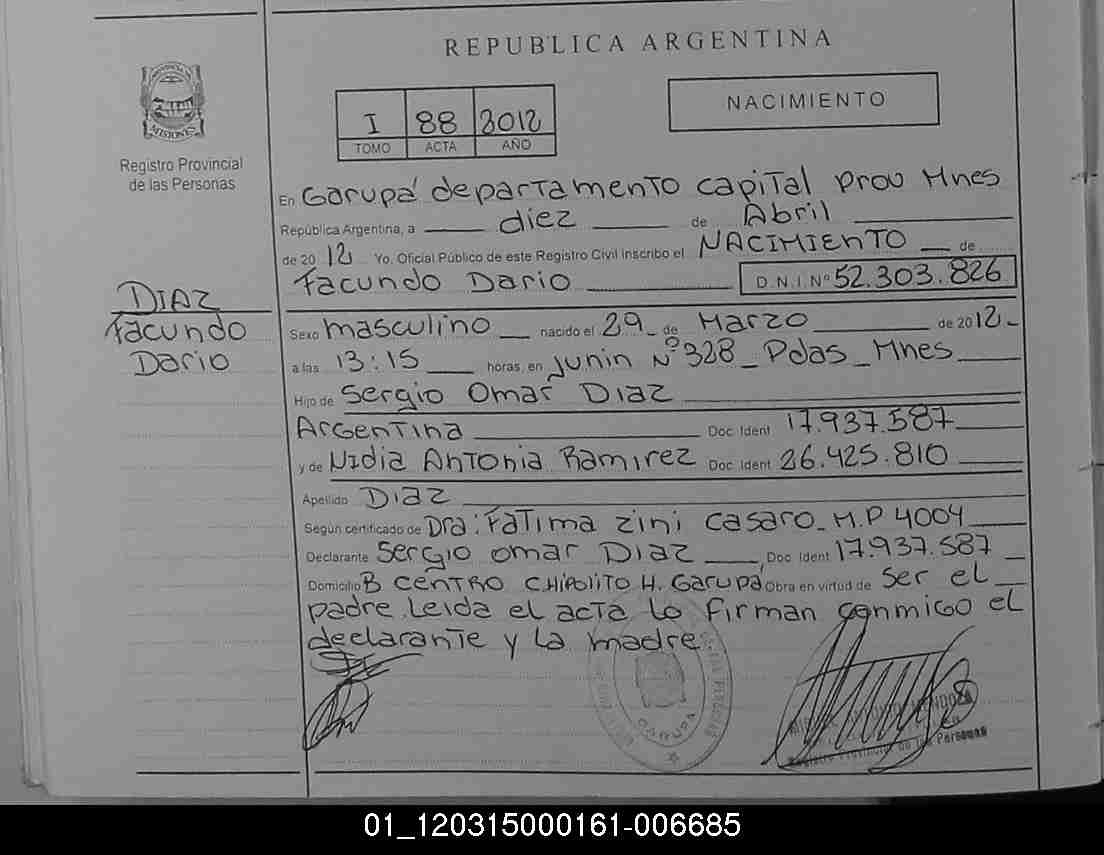 REPUBLICA ARGENTINA
PROVINCIA DE
MISIONES
Registro Provincial
de las Personas
I 88 2012
TOMO ACTA AÑO
NACIMIENTO
En Garupá departamento capital Prov Mnes
República Argentina, a diez de Abril
de 2012 Yo. Oficial Público de este Registro Civil Inscribo el NACIMIENTO de
Facundo Dario D.N.I. Nº 52.303.826
DIAZ
Facundo
Dario
Sexo masculino nacido el 29 de Marzo de 2012
a las 13:15 horas, en Junin Nº 328 Pdas Mnes
Hijo de Sergio Omar DIAZ
Argentina Doc Ident 17.937.587
y de Nidia Antonia Ramirez Doc Ident 26.425.810
Apellido DIAZ
Según certificado de Dra: Fatima Zini Casaro M.P 4004
Declarante Sergio Omar DIAZ Doc Ident 17.937.587
Domicilio B CENTRO C.Hipolito H. Garupá Obra en virtud de Ser el
padre. Leida el acta lo firman conmigo el
declarante y la madre.
GARUPA
MENDOZA
Registro Provincial de las Personas
01_120315000161-006685